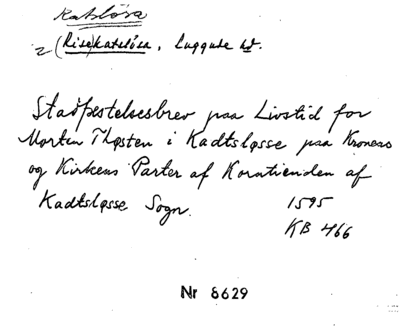 Katslösa
2 (Rise)katslösa, Luggude hd.
Stadfæstelsesbrev paa Livstid for
Morten Thøsten i Kadtsløsse paa Kronens
og Kirkens Parter af Korntienden af
Kadtsløsse Sogn.
1595
KB 466
Nr 8629